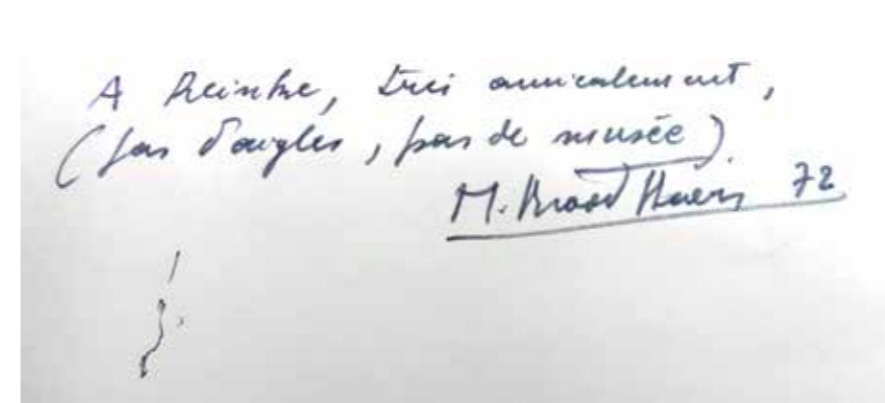 A Reinhe, très amicalement,
(pas d'aigles, pas de musée)
M. Broodthaers 72